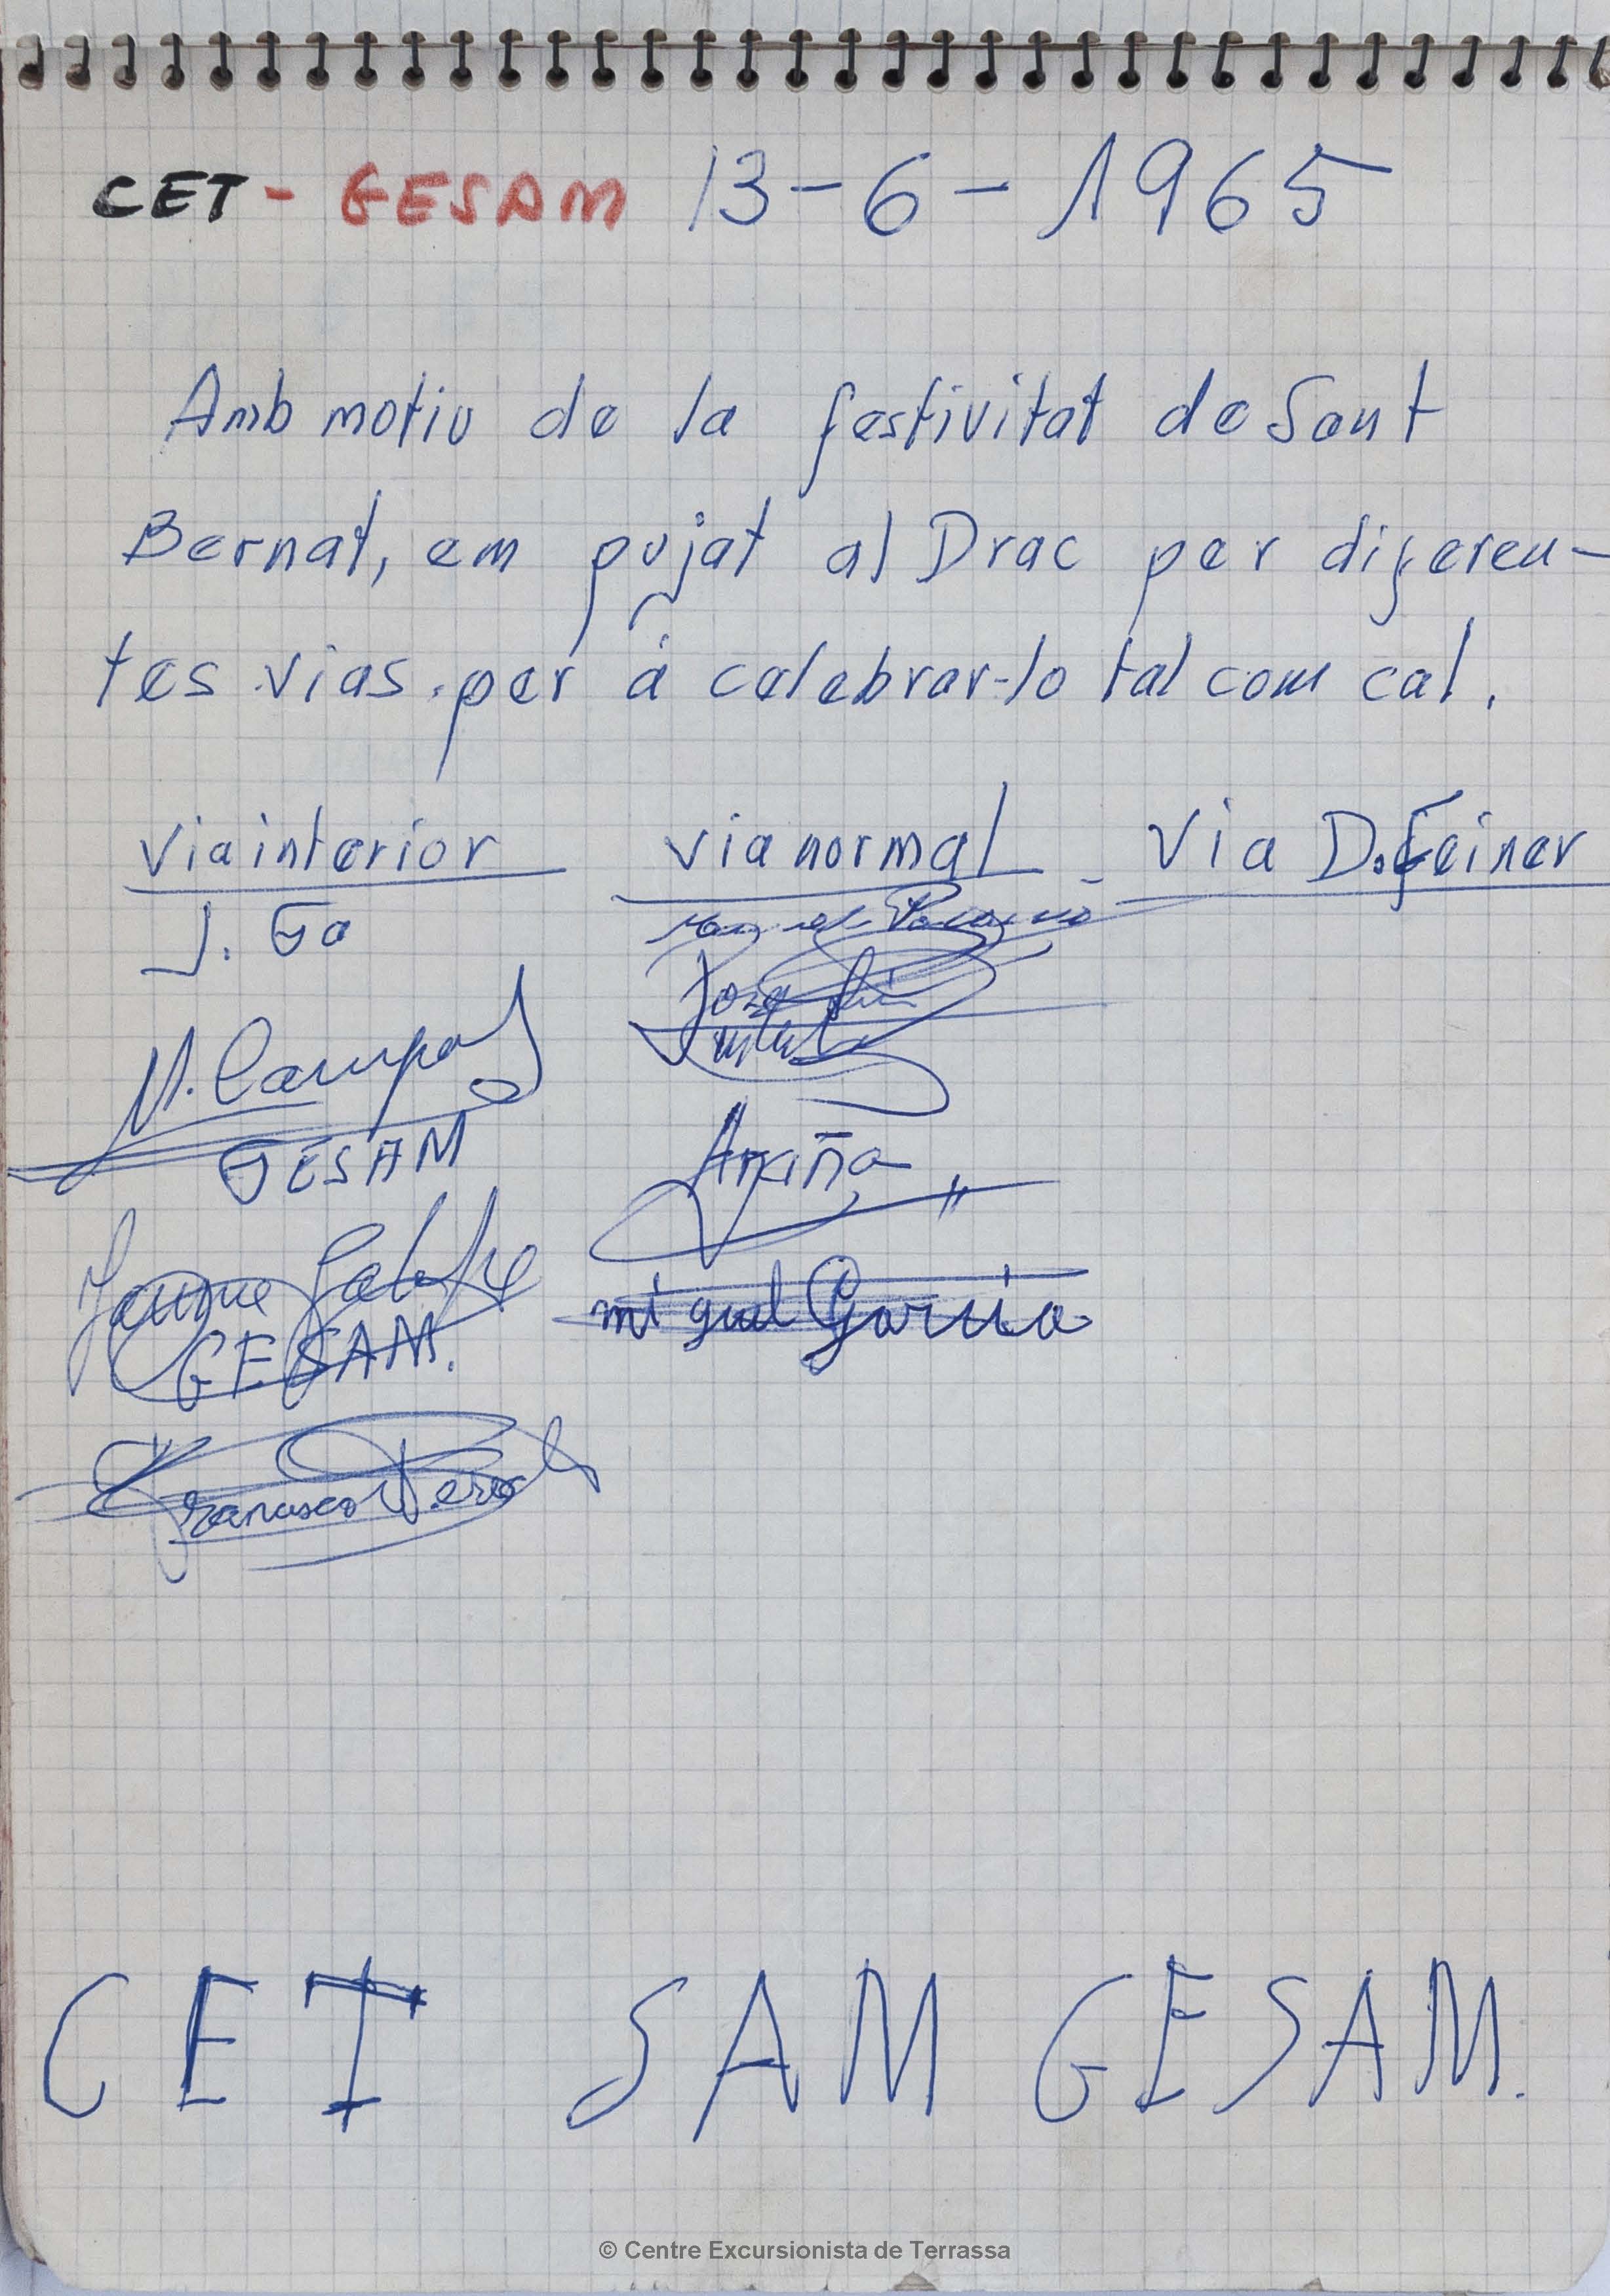 CET - GESAM 13-6-1965
Amb motiu de la festivitat de Sant
Bernat, em pujat al Drac per diferen-
tes vias per á celebrar-lo tal com cal.
Via interior via normal Via D. Feiner
J. Go
M. Campos
GESAM
Jaume
GESAM.
Francisco
Jose
Arriña
miguel Garcia
CET SAM GESAM.
© Centre Excursionista de Terrassa